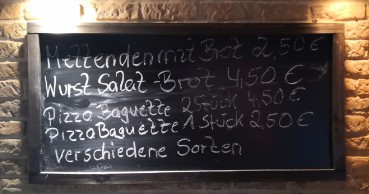 Mettenden mit Brot 2,50€
Wurst Salat-Brot 4,50 €
Pizza Baguette 2 Stück 4,50 €
Pizza Baguette 1 Stück 2,50€
verschiedene Sorten